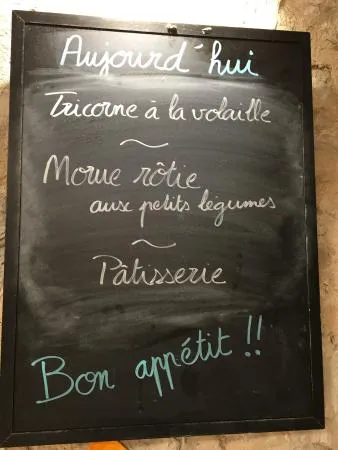 Aujourd'hui
Tricorne à la volaille
~
Morue rôtie
aux petits légumes
~
Pâtisserie
Bon appétit !!